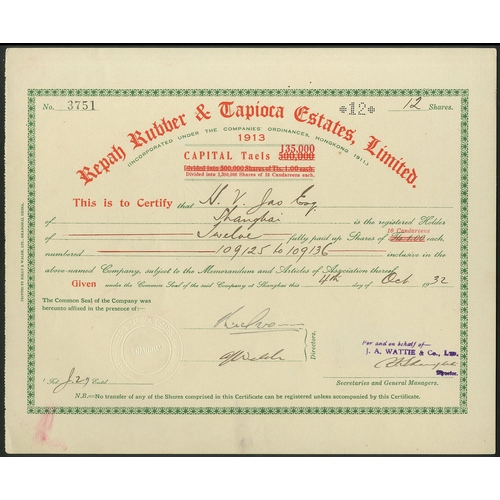 No. 3751
12
12 Shares.
Repah Rubber & Tapioca Estates, Limited.
(INCORPORATED UNDER THE COMPANIES' ORDINANCES, HONGKONG 1911)
1913
135,000
CAPITAL Taels 500,000
Divided into 500,000 Shares of Tls. 1.00 each.
Shares of 16 Candareens each.
This is to Certify that H. V. Jao Esq.
of Shanghai is the registered Holder
16 Candareens
of Twelve fully paid up Shares of Tls 1.00 each,
numbered 109125 to 109136 inclusive in the
above-named Company, subject to the Memorandum and Articles of Association thereof
Given under the Common Seal of the said Company at Shanghai this 4th day of Oct 1932
The Common Seal of the Company was
hereunto affixed in the presence of:
Directors
For and on behalf of
J. A. WATTIE & Co., Ltd.
Director.
Secretaries and General Managers.
N.B.—No transfer of any of the Shares comprised in this Certificate can be registered unless accompanied by this Certificate.